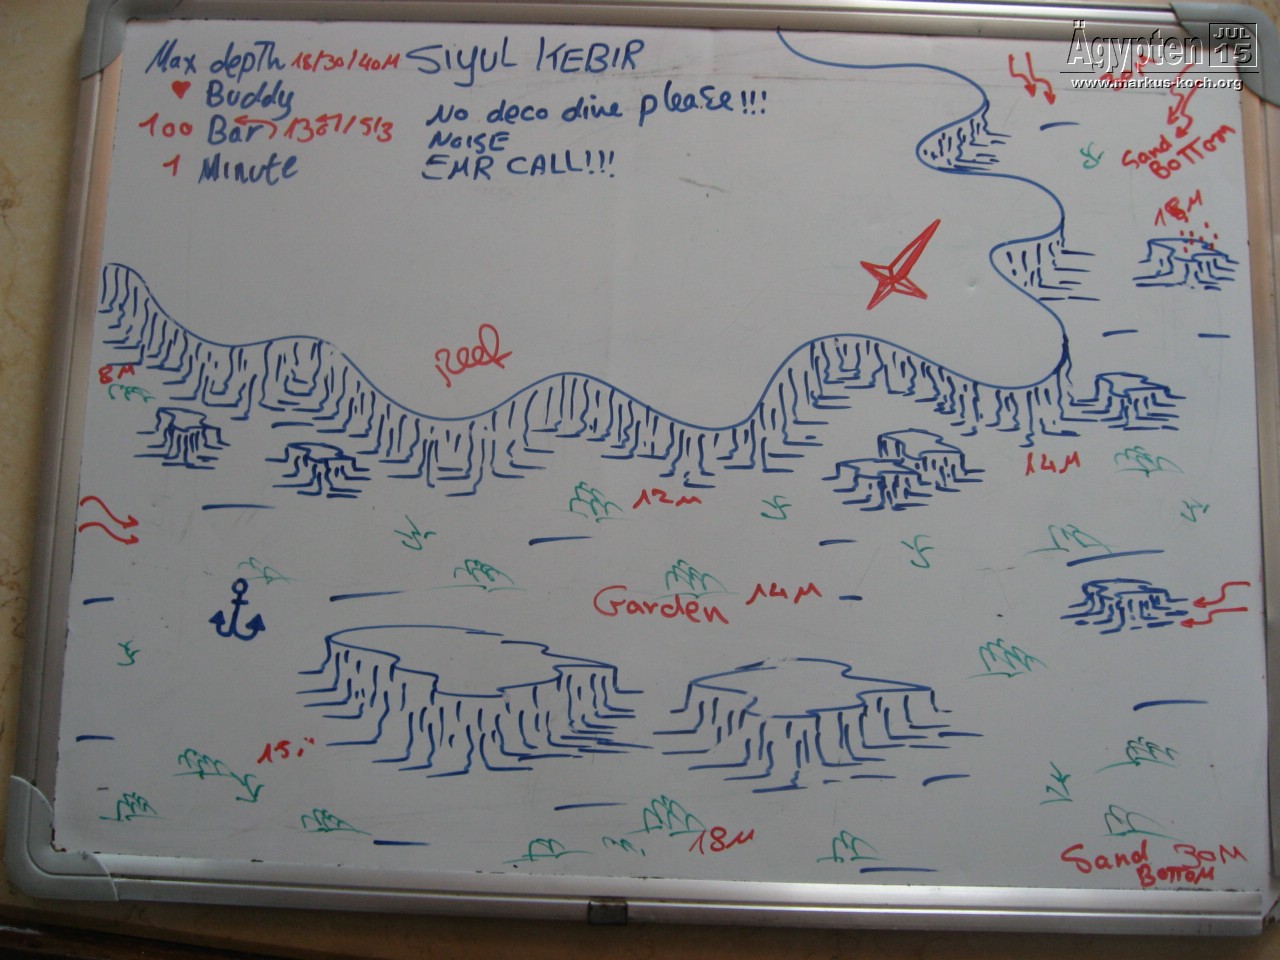 Max depth 18/30/40M SIYUL KEBIR
Buddy
100 Bar 5/3
1 Minute
No deco dive please!!!
NOISE
EMR CALL!!!
Ägypten JUL 15
www.markus-koch.org
30M
Sand
BOTTOM
18M
reef
8M
14M
12M
Garden 14M
18M
Sand 30M
BOTTOM